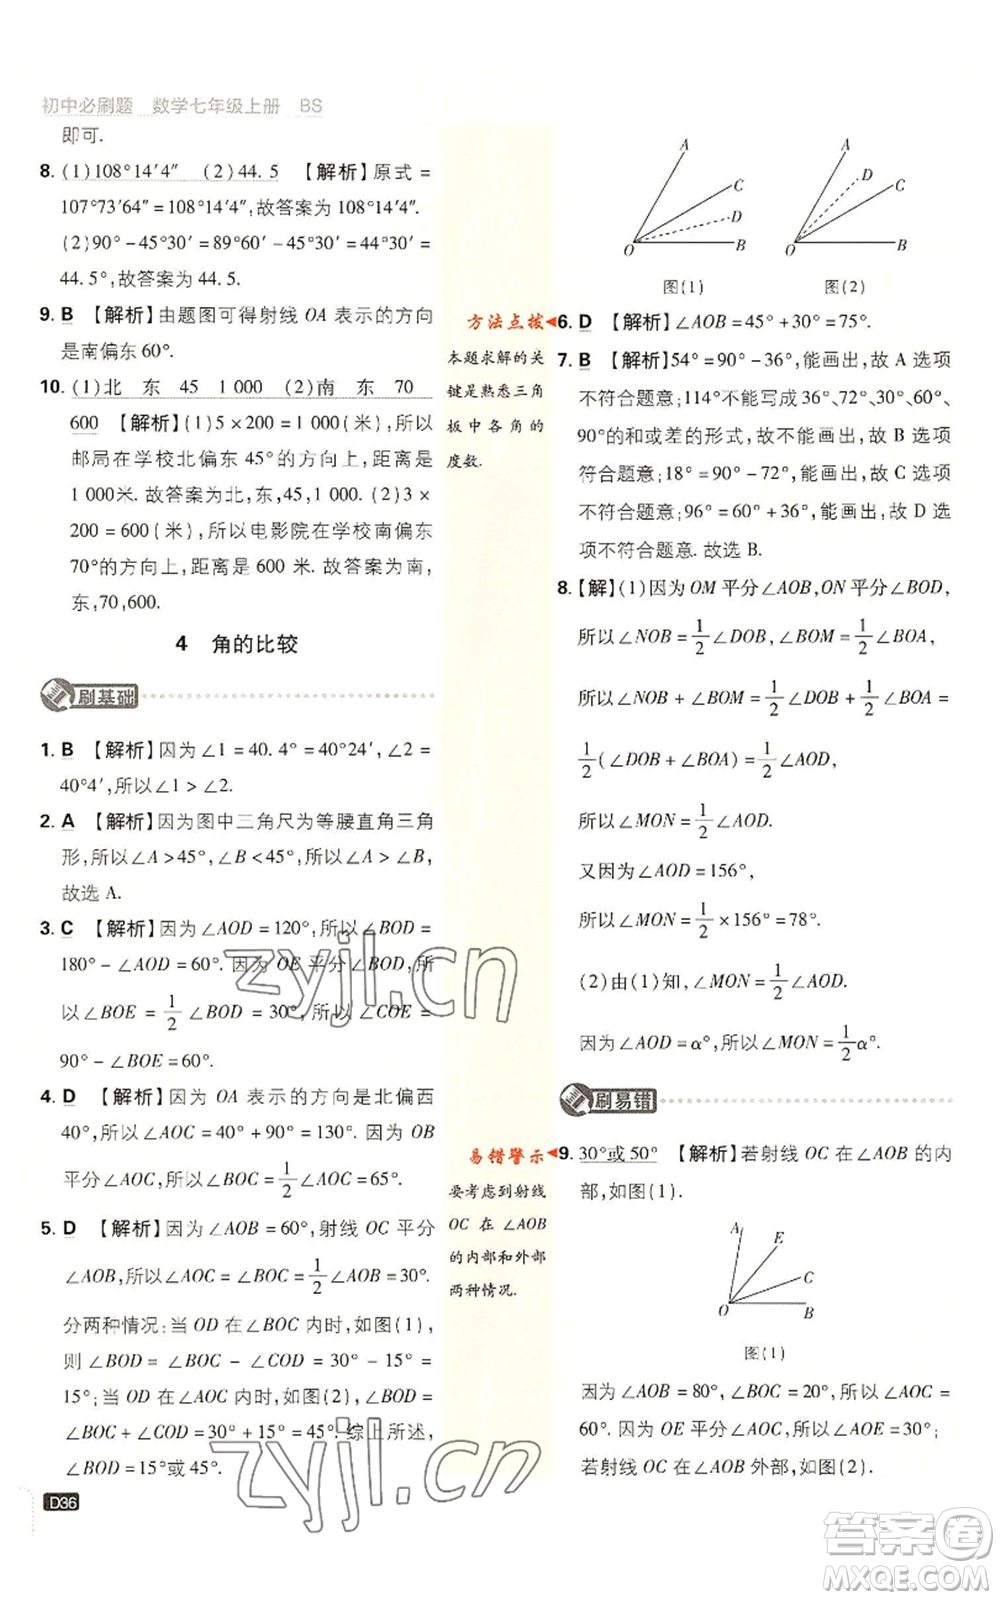 初中必刷题 数学七年级上册 BS
即可.
8. (1)108°14′4″ (2)44. 5 【解析】原式 =
107°73′64″ = 108°14′4″,故答案为 108°14′4″.
(2)90° - 45°30′ = 89°60′ - 45°30′ = 44°30′ =
44.5,故答案为 44.5.
9. B 【解析】由题图可得射线 OA 表示的方向
是南偏东 60°.
10. (1)北 东 45 1 000 (2)南 东 70
600 【解析】(1)5 × 200 = 1 000(米),所以
邮局在学校北偏东 45°的方向上,距离是
1 000米. 故答案为北,东,45,1 000. (2)3 ×
200 = 600(米),所以电影院在学校南偏东
70°的方向上,距离是 600 米. 故答案为南,
东,70,600.
4 角的比较
刷基础
1. B 【解析】因为∠1 = 40. 4° = 40°24′,∠2 =
40°4′,所以∠1 > ∠2.
2. A 【解析】因为图中三角尺为等腰直角三角
形,所以∠A >45°,∠B <45°,所以∠A > ∠B.
故选 A.
3. C 【解析】因为∠AOD = 120°,所以∠BOD =
180° - ∠AOD = 60°. 因为 OE 平分∠BOD,所
以∠BOE = 1/2 ∠BOD = 30°,所以∠COE =
90° - ∠BOE = 60°.
4. D 【解析】因为 OA 表示的方向是北偏西
40°,所以∠AOC = 40° + 90° = 130°. 因为 OB
平分∠AOC,所以∠BOC = 1/2 ∠AOC = 65°.
5. D 【解析】因为∠AOB = 60°,射线 OC 平分
∠AOB,所以∠AOC = ∠BOC = 1/2 ∠AOB = 30°.
分两种情况:当 OD 在∠BOC 内时,如图(1),
则∠BOD = ∠BOC - ∠COD = 30° - 15° =
15°;当 OD 在∠AOC 内时,如图(2),则
∠BOD = 30° + 15° = 45°. 综上所述,
∠BOD = 15°或45°.
D36
zyjl.cn
A
C
D
O
B
图(1)
A
D
C
O
B
图(2)
方法点拨
本题求解的关
键是熟悉三角
板中各角的
度数.
6. D 【解析】∠AOB = 45° + 30° = 75°.
7. B 【解析】54° = 90° - 36°,能画出,故 A 选项
不符合题意;114°不能写成 36°、72°、30°、60°、
90°的和或差的形式,不能画出,故 B 选项
符合题意;18° = 90° - 72°,能画出,故 C 选项
不符合题意;96° = 60° + 36°,能画出,故 D 选
项不符合题意. 故选 B.
8. 【解】(1)因为 OM 平分∠AOB,ON 平分∠BOD,
所以∠NOB = 1/2 ∠DOB,∠BOM = 1/2 ∠BOA,
所以∠NOB + ∠BOM = 1/2 ∠DOB + 1/2 ∠BOA =
1/2 (∠DOB + ∠BOA) = 1/2 ∠AOD,
所以∠MON = 1/2 ∠AOD.
又因为∠AOD = 156°,
所以∠MON = 1/2 × 156° = 78°.
(2)由(1)知,∠MON = 1/2 ∠AOD.
因为∠AOD = α°,所以∠MON = 1/2 α°.
刷易错
易错警示
要考虑到射线
OC 在∠AOB
的内部和外部
两种情况.
9. 30°或 50° 【解析】若射线 OC 在∠AOB 的内
部,如图(1).
A
E
C
O
B
图(1)
因为∠AOB = 80°,∠BOC = 20°,所以∠AOC =
60°. 因为 OE 平分∠AOC,所以∠AOE = 30°;
若射线 OC 在∠AOB 外部,如图(2).
zyjl.cn
答案圈
MXQE.COM